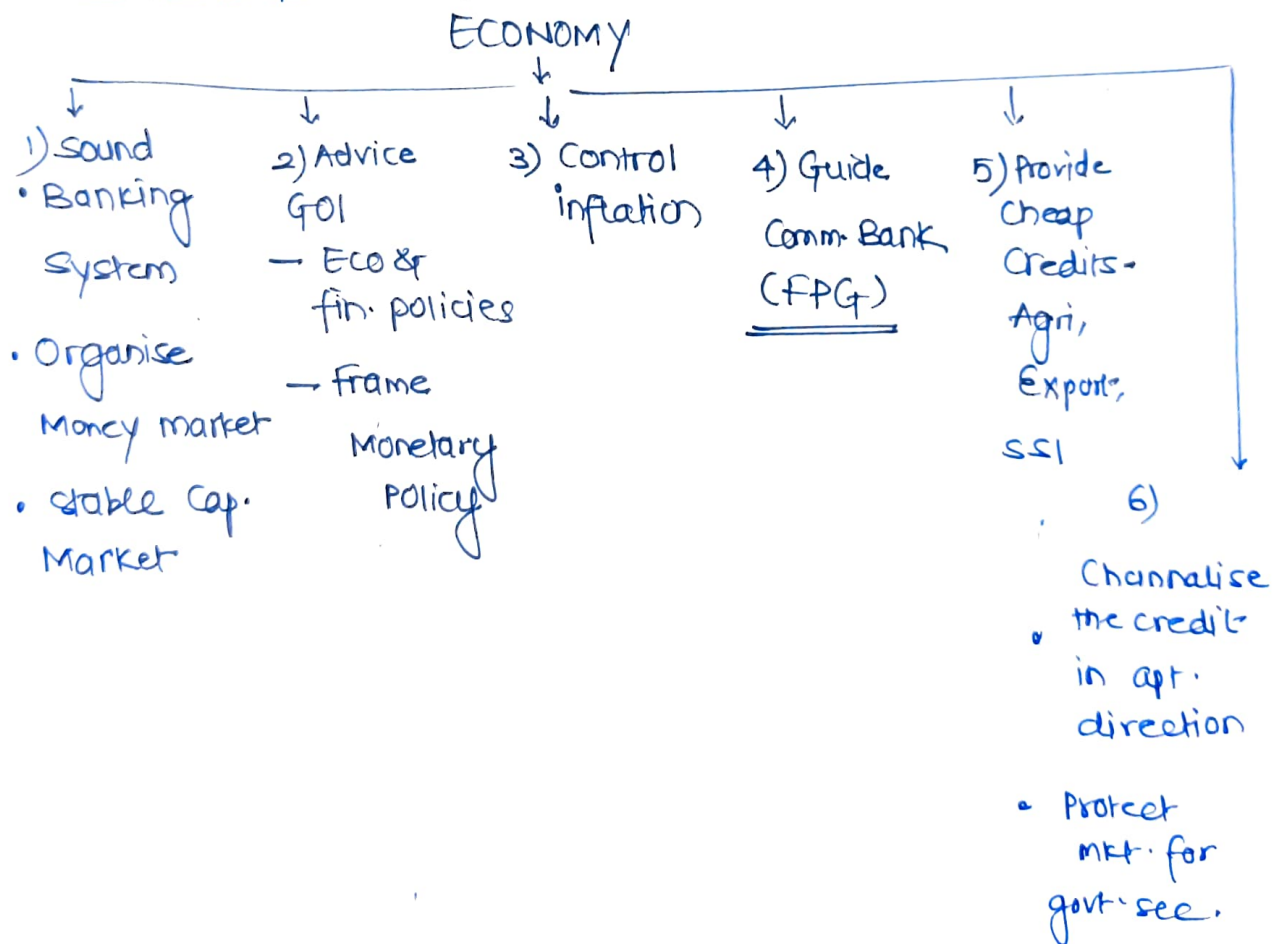 ECONOMY
1) Sound
• Banking
System
• Organise
Money market
• stable Cap.
Market
2) Advice
GOI
— Eco &
fin. policies
— Frame
Monetary
Policy
3) Control
inflation
4) Guide
Comm. Bank
(FPG)
5) Provide
Cheap
Credits-
Agri,
Export,
SSI
6)
Channalise
• the credit
in apt.
direction
• Protect
mkt. for
govt. sec.